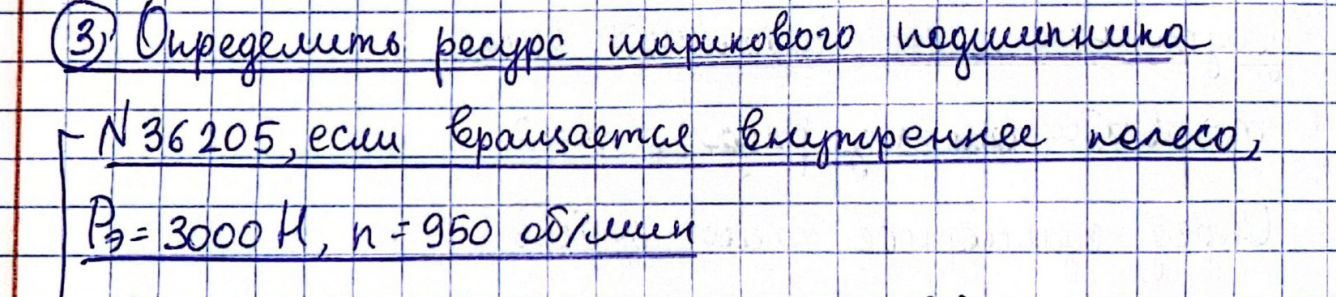 ③ Определить ресурс шарикового подшипника
N 36205, если вращается внутреннее колесо,
Pэ = 3000 Н, n = 950 об/мин